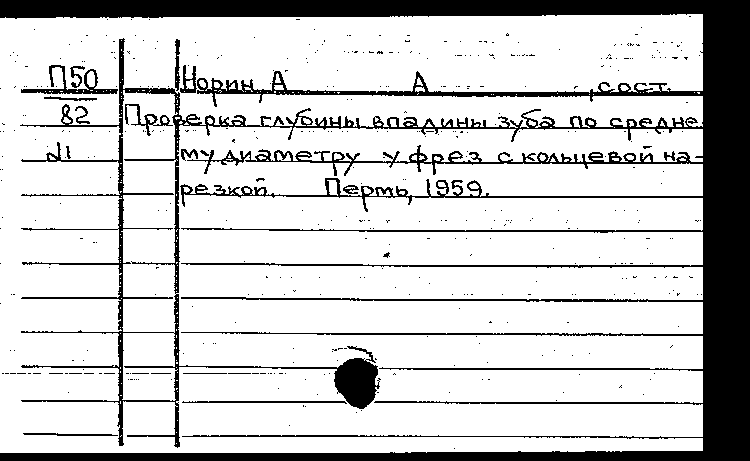 П50 Норин, А А , сост.
82 Проверка глубины впадины зуба по средне
му диаметру у фрез с кольцевой на-
резкой. Пермь, 1959.